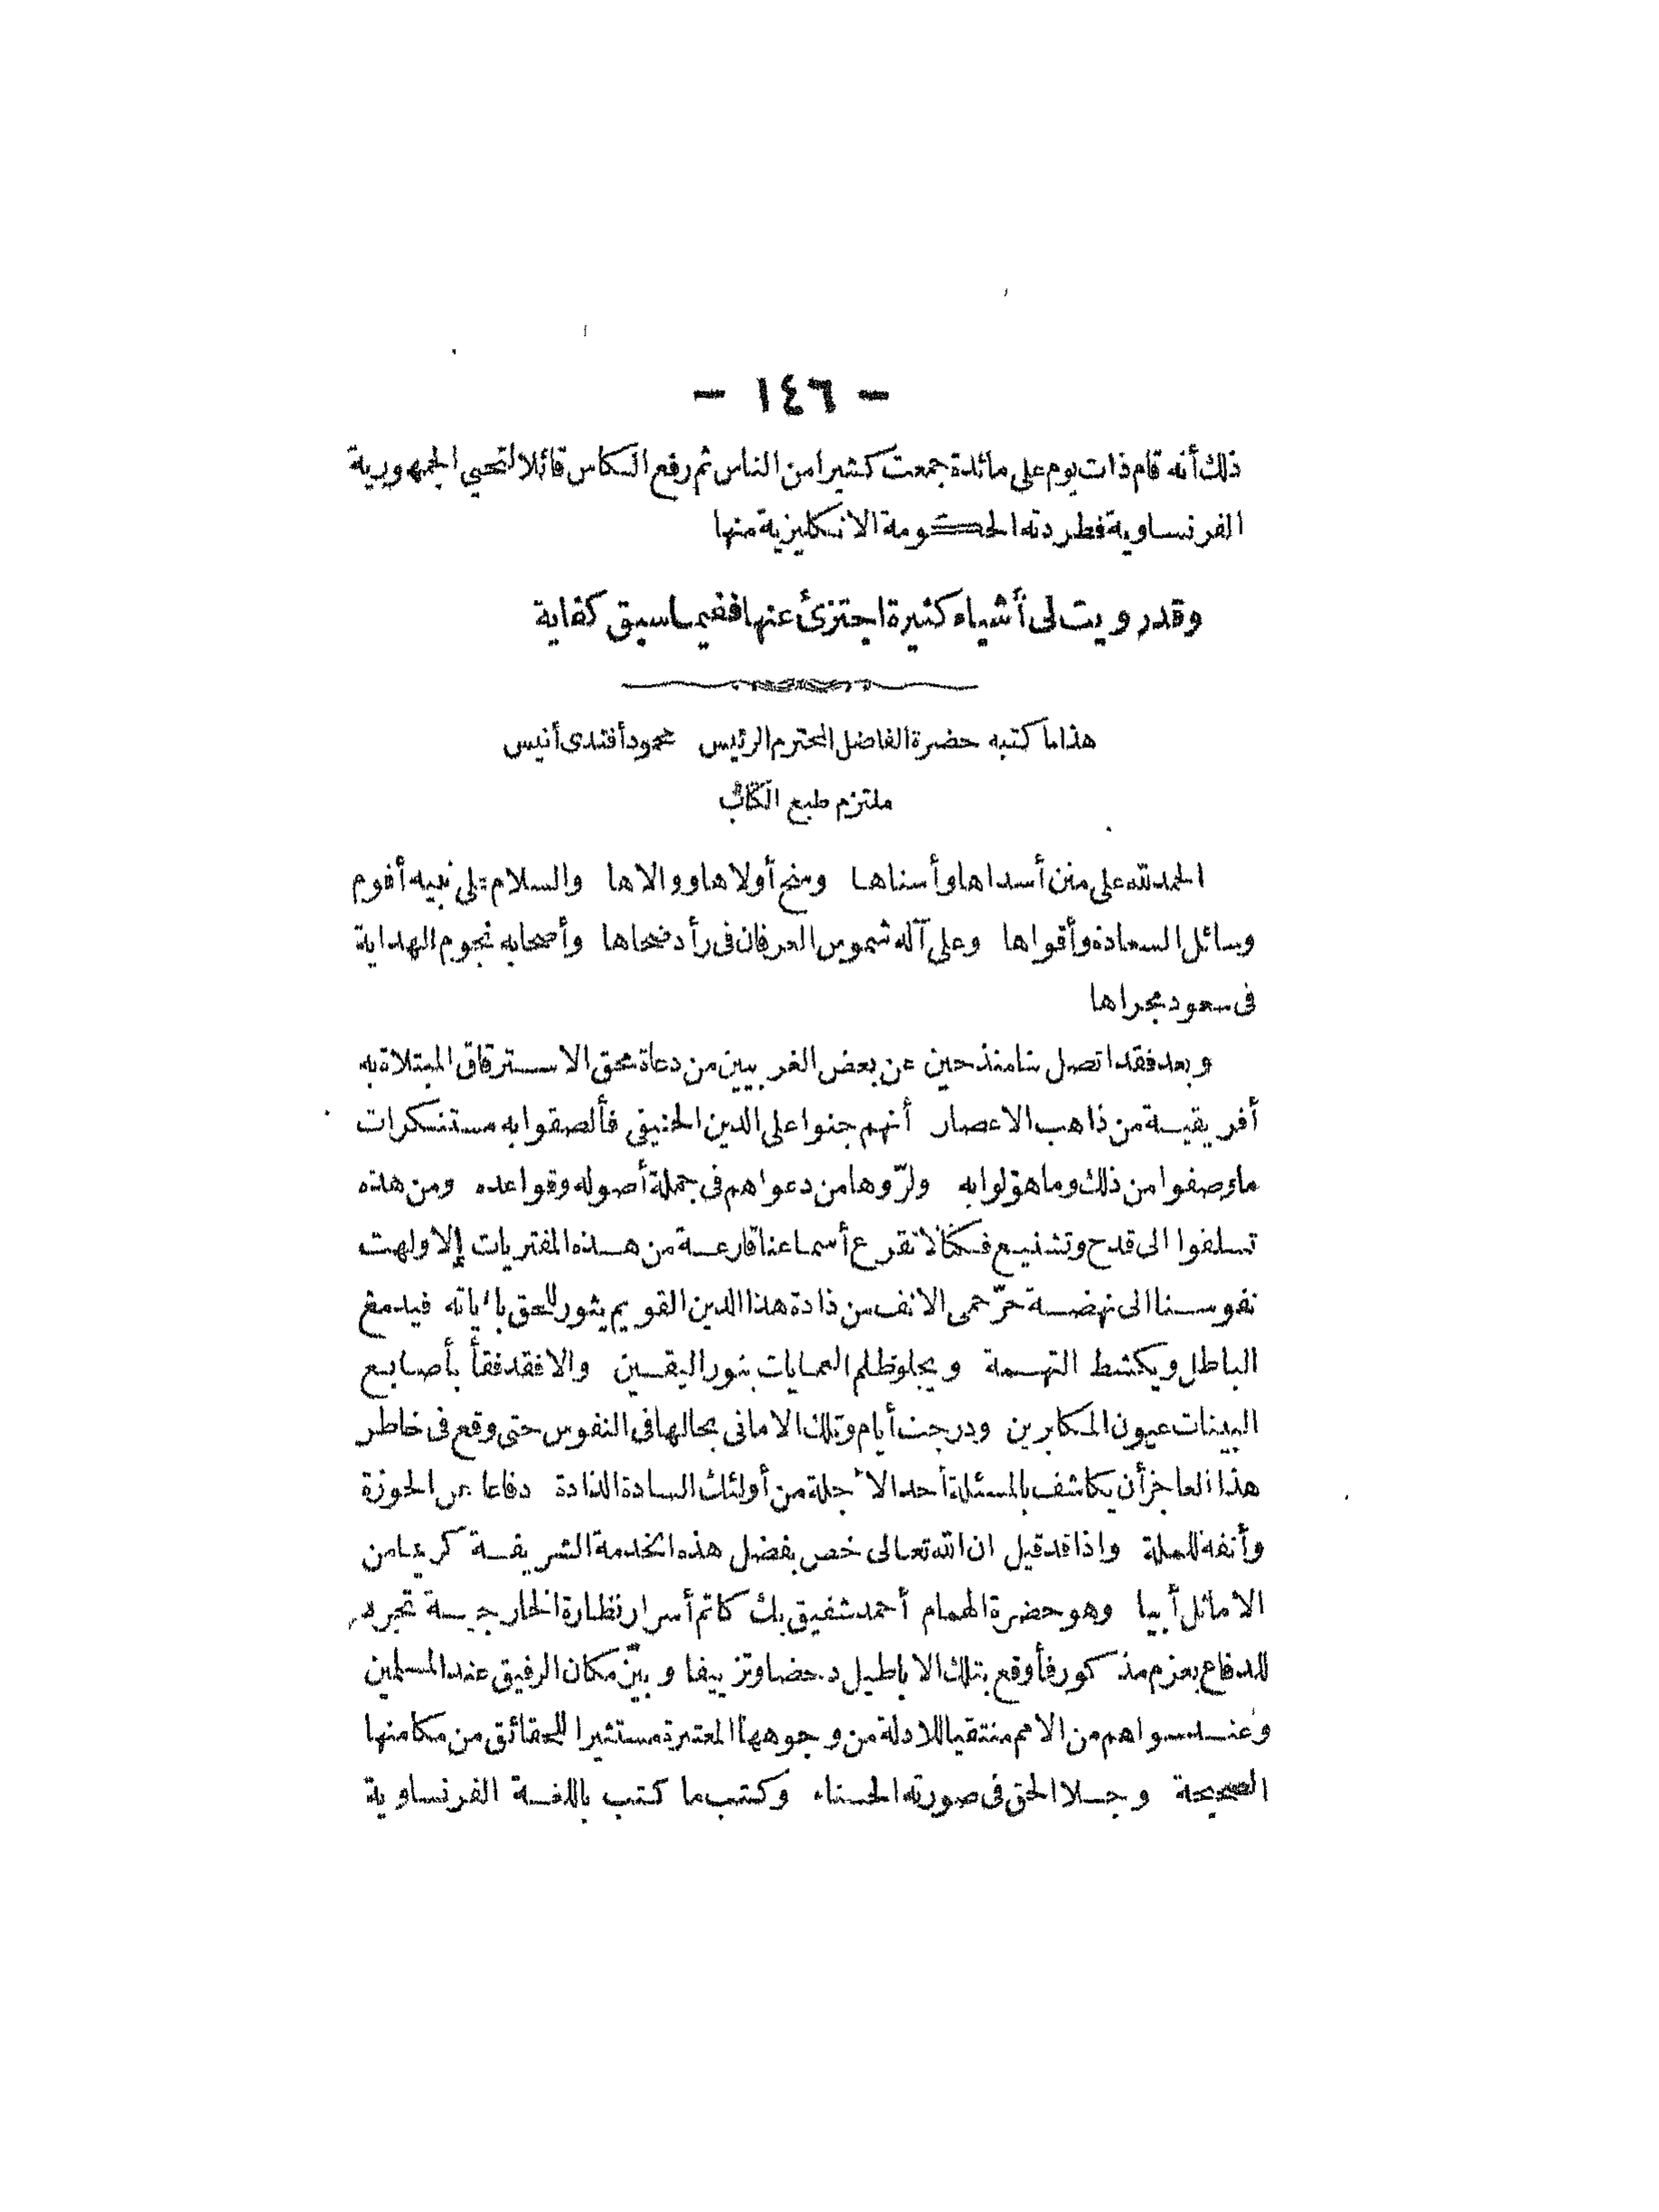 - ١٤٦ -
ذلك أنه قام ذات يوم على مائدة جمعت كثيرا من الناس ثم رفع الكاس قائلا لتحيي الجمهورية
الفرنساوية فطردته الحكومة الانكليزية منها
وقد رويت لى أشياء كثيرة اجتزئ عنها ففيما سبق كفاية
هذا ما كتبه حضرة الفاضل المحترم الرئيس محمود أفندى أنيس
ملتزم طبع الكتاب
الحمد لله على منن أسداها وأسناها ومنح أولاها ووالاها والسلام على نبيه أقوم
وسائل السعادة وأقواها وعلى آله شموس العرفان فى رأد ضحاها وأصحابه نجوم الهداية
فى سعود مجراها
وبعد فقد اتصل بنا منذ حين عن بعض الغربيين من دعاة محق الاسترقاق المبتلاة به
أفريقية من ذاهب الاعصار أنهم جنوا على الدين الحنيفى فألصقوا به مستنكرات
ما وصفوا من ذلك وما هوّلوا به ولزّوها من دعواهم فى جملة أصوله وقواعده ومن هذه
تسلفوا الى قدح وتشنيع فكنا لا تقرع أسماعنا قارعة من هذه المفتريات إلا ولهت
نفوسنا الى نهضة حرّ حمى الانف من ذادة هذا الدين القويم يثور للحق بآياته فيدمغ
الباطل ويكشط التهمة ويجلو ظلم العمايات بنور اليقين والا فقد فقأ بأصابع
البينات عيون المكابرين ودرجت أيام وتلك الامانى بحالها فى النفوس حتى وقع فى خاطر
هذا العاجز أن يكاشف بالمسئلة أحد الاجلة من أولئك السادة الذادة دفاعا عن الحوزة
وأنفة للملة واذا قد قيل ان الله تعالى خص بفضل هذه الخدمة الشريفة كريما من
الاماثل أبيا وهو حضرة الهمام أحمد شفيق بك كاتم أسرار نظارة الخارجية تجرد
للدفاع بعزم مذكور فأوقع بتلك الاباطيل دحضا وتزييفا وبيّن مكان الرفيق عند المسلمين
وعند سواهم من الامم منتقيا للادلة من وجوهها المعتبرة مستثيرا للحقائق من مكامنها
الصحيحة وجلا الحق فى صورته الحسناء وكتب ما كتب باللغة الفرنساوية